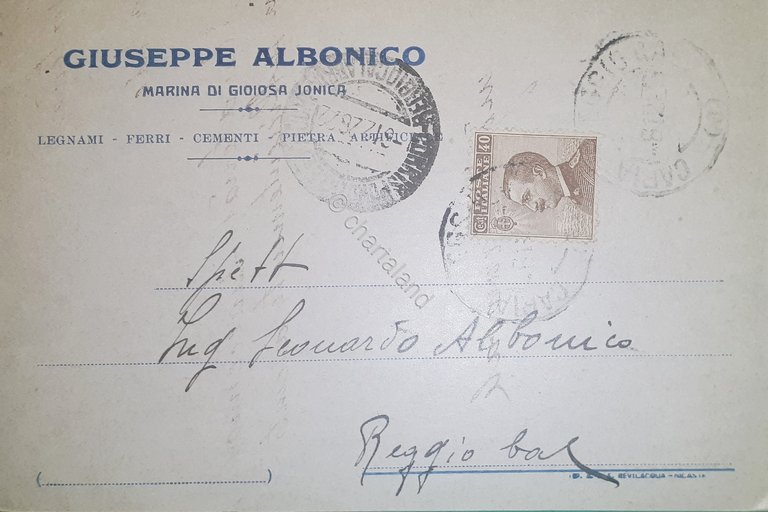 GIUSEPPE ALBONICO
MARINA DI GIOIOSA JONICA
LEGNAMI - FERRI - CEMENTI - PIETRA
40
POSTE
ITALIANE
© chartaland
Spett
Ing Leonardo Albonico
Reggio Cal
( )
BEVILACQUA -